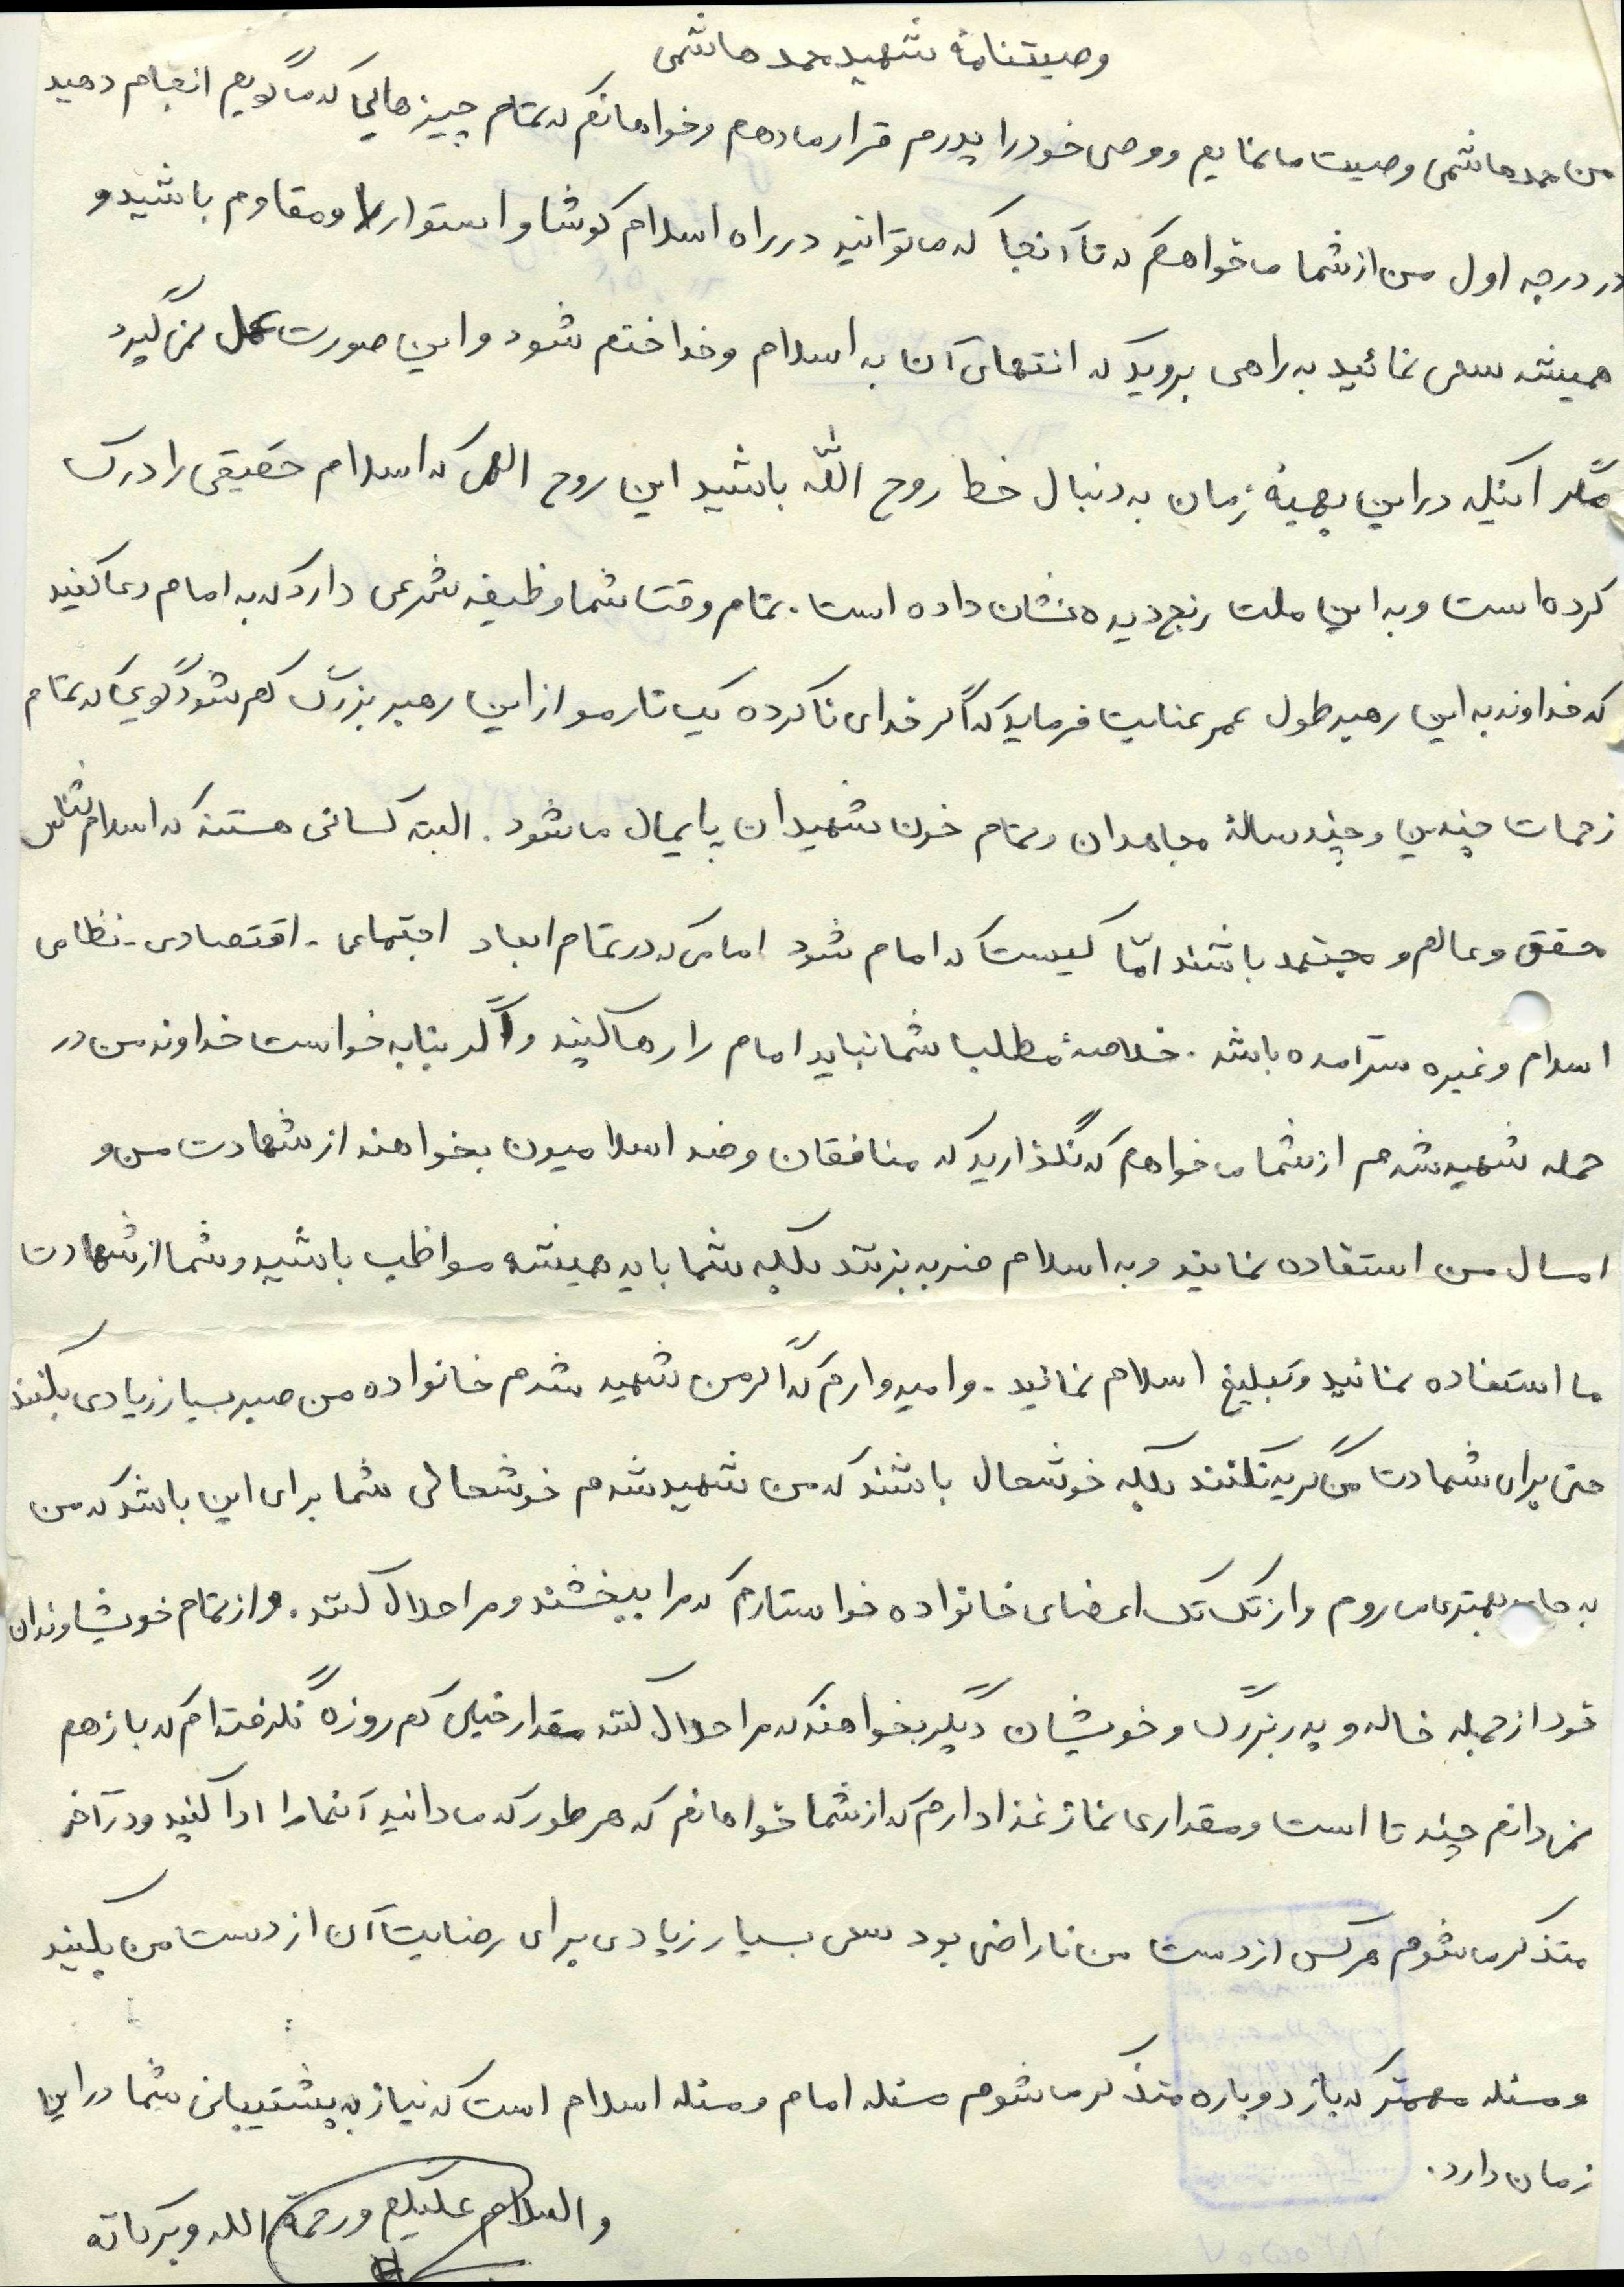 وصیتنامهٔ شهید محمد هاشمی
من محمد هاشمی وصیت می‌نمایم و وصی خود را پدرم قرار می‌دهم و خواهانم که تمام چیزهایی که می‌گویم انجام دهید
در درجه اول من از شما می‌خواهم که تا آنجا که می‌توانید در راه اسلام کوشا و استوار و مقاوم باشید و
همیشه سعی نمائید به راهی بروید که انتهای آن به اسلام و خدا ختم شود و این صورت عمل نمی‌گیرد
مگر اینکه در این بهینهٔ زمان به دنبال خط روح اللّه باشید این روح الهی که اسلام حقیقی را درک
کرده است و به این ملت رنج دیده نشان داده است. تمام وقت شما وظیفه شرعی دارد که به امام دعا کنید
که خداوند به این رهبر طول عمر عنایت فرماید که اگر خدای نا کرده یک تار مو از این رهبر بزرگ کم شود گویی که تمام
زحمات چندین و چند سالهٔ مجاهدان و تمام خون شهیدان پایمال می‌شود. البته کسانی هستند که اسلام شناس
محقق و عالم و مجتهد باشند امّا کیست که امام شود امامی که در تمام ابعاد اجتماعی - اقتصادی - نظامی
اسلام و غیره سرآمده باشد. خلاصهٔ مطلب شما نباید امام را رها کنید و اگر بنا به خواست خداوند من در
حمله شهید شدم از شما می‌خواهم که نگذارید که منافقان و ضد اسلامیون بخواهند از شهادت من و
امسال من استفاده نمایند و به اسلام ضربه بزنند بلکه شما باید همیشه مواظب باشید و شما از شهادت
ما استفاده نمائید و تبلیغ اسلام نمائید. و امیدوارم که اگر من شهید شدم خانواده من صبر بسیار زیادی بکنند
حتی برای شهادت من گریه نکنند بلکه خوشحال باشند که من شهید شدم خوشحالی شما برای این باشد که من
به جای بهتری می‌روم و از تک تک اعضای خانواده خواستارم که مرا ببخشند و مرا حلال کنند. و از تمام خویشاوندان
خود از جمله خاله و پدربزرگ و خویشان دیگر بخواهند که مرا حلال کنند مقدار خیلی کم روزه نگرفته‌ام که باز هم
نمی‌دانم چند تا است و مقداری نماز غذا دارم که از شما خواهانم که هر طور که می‌دانید آنها را ادا کنید و در آخر
متذکر می‌شوم هر کس از دست من ناراضی بود سعی بسیار زیادی برای رضایت آن از دست من بکنید
و مسئله مهمتر که باز دوباره متذکر می‌شوم مسئله امام و مسئله اسلام است که نیاز به پشتیبانی شما در این
زمان دارد.
والسلام علیکم و رحمة الله و برکاته